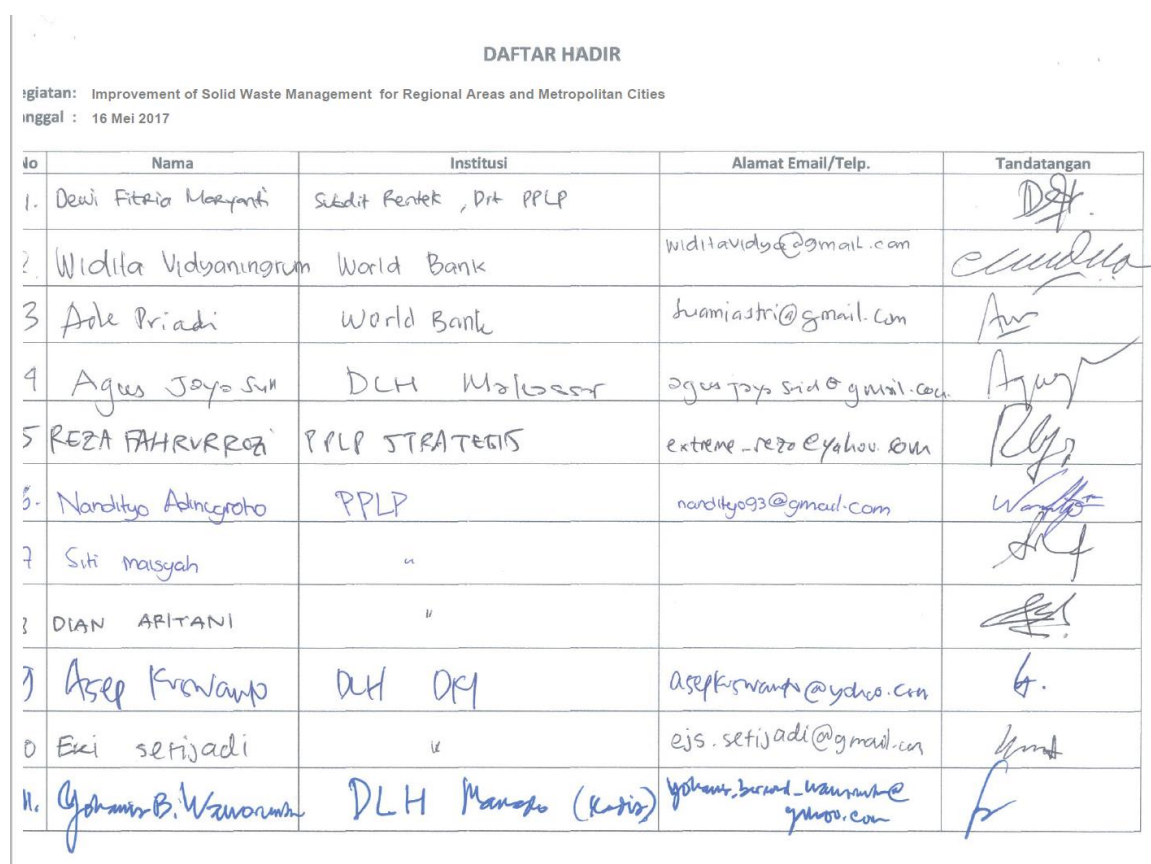 DAFTAR HADIR
egiatan: Improvement of Solid Waste Management for Regional Areas and Metropolitan Cities
anggal : 16 Mei 2017
No Nama Institusi Alamat Email/Telp. Tandatangan
1. Dewi Fitria Maryanti Subdit Rentek, Dit PPLP
2. Widita Vidyaningrum World Bank widitavidya@gmail.com
3 Ade Priadi World Bank suamiastri@gmail.com
4 Agus Jaya DLH Makassar
5 REZA FAHRURROZI PPLP STRATEGIS extreme_reza@yahoo.com
6. Nandityo Adinugroho PPLP nandityo93@gmail.com
7 Siti maisyah "
8 DIAN ARITANI "
9 Asep Kuswanto DLH DKI asepkuswanto@yahoo.com
0 Eki setijadi " ejs.setijadi@gmail.com
11. Yohanis B. DLH Manado (Kadis)